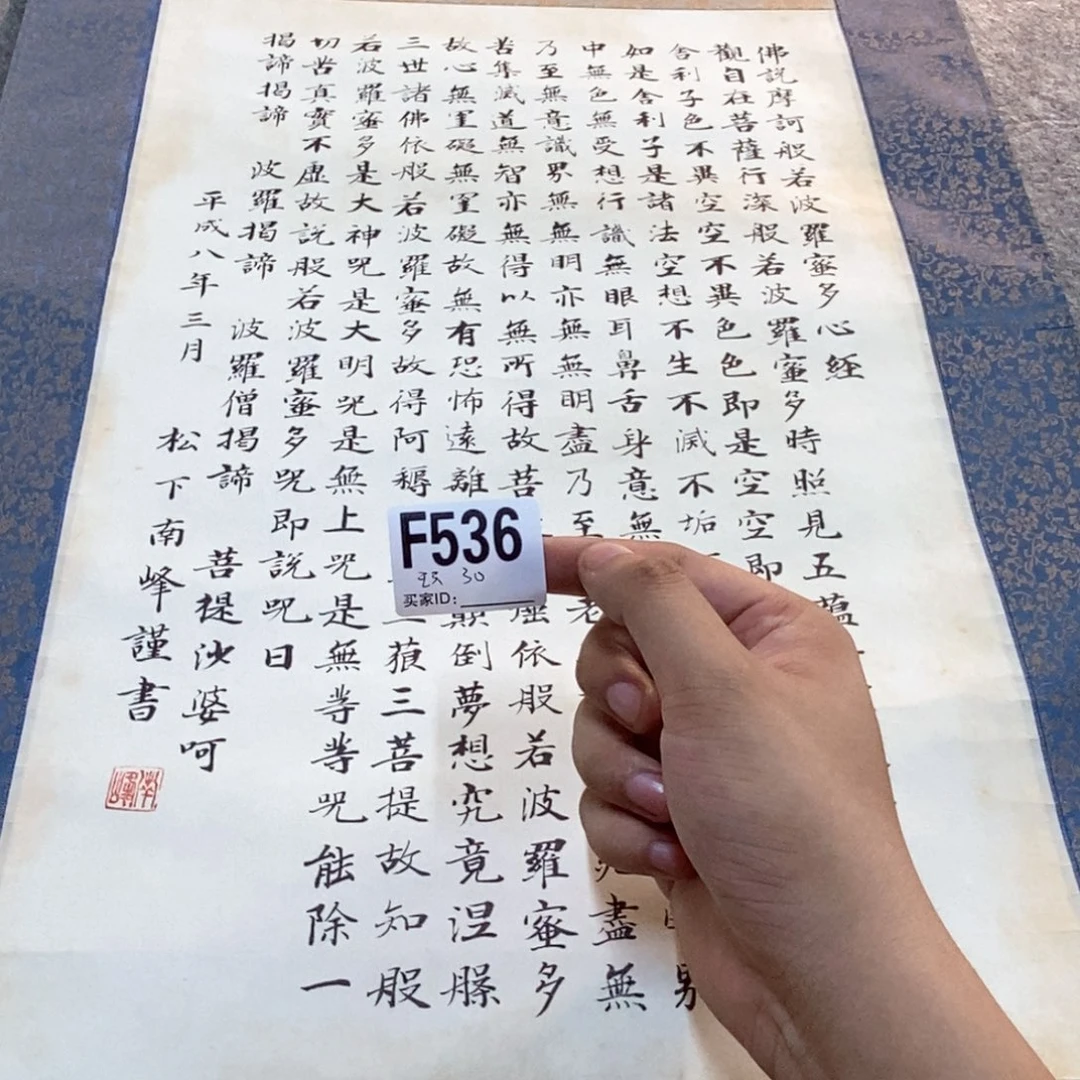 佛說摩訶般若波羅蜜多心経
觀自在菩薩行深般若波羅蜜多時照見五蘊
舍利子色不異空空不異色色即是空空即
如是舍利子是諸法空想不生不滅不垢
中無色無受想行識無眼耳鼻舌身意無
乃至無意識界無無明亦無無明盡乃至老盡無
苦集滅道無智亦無得以無所得故菩依般若波羅蜜多
故心無罣礙無罣礙故無有恐怖遠離顛倒夢想究竟涅槃
三世諸佛依般若波羅蜜多故得阿耨三藐三菩提故知般
若波羅蜜多是大神咒是大明咒是無上咒是無等等咒能除一
切苦真實不虛故說般若波羅蜜多咒即說咒曰
揭諦揭諦 波羅揭諦 波羅僧揭諦 菩提沙婆呵
平成八年三月 松下南峰謹書
南峰
F536
30
买家ID: